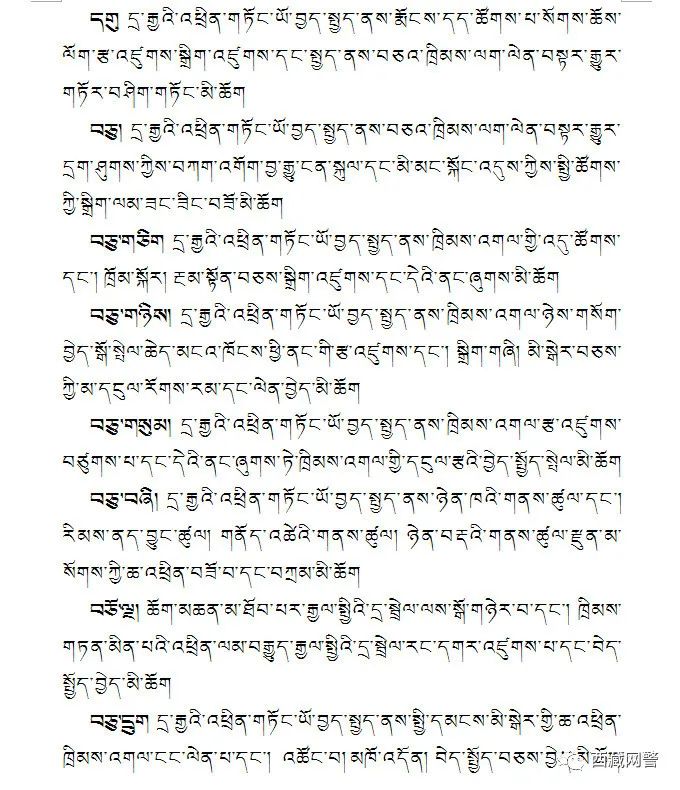 དགུ དྲ་རྒྱའི་འཕྲིན་གཏོང་ཡོ་བྱད་སྤྱད་ནས་རྨོངས་དད་ཚོགས་པ་སོགས་ཆོས་
ལོག་རྩ་འཛུགས་སྒྲིག་འཛུགས་དང་སྤྱད་ནས་བཅའ་ཁྲིམས་ལག་ལེན་བསྟར་རྒྱུར་
གཏོར་བཤིག་གཏོང་མི་ཆོག
བཅུ། དྲ་རྒྱའི་འཕྲིན་གཏོང་ཡོ་བྱད་སྤྱད་ནས་བཅའ་ཁྲིམས་ལག་ལེན་བསྟར་རྒྱུར་
དྲག་ཤུགས་ཀྱིས་བཀག་འགོག་བྱ་རྒྱུ་ངན་སྐུལ་དང་མི་མང་སྐོང་འདུས་ཀྱིས་སྤྱི་ཚོགས་
ཀྱི་སྒྲིག་ལམ་ཟང་ཟིང་བཟོ་མི་ཆོག
བཅུ་གཅིག དྲ་རྒྱའི་འཕྲིན་གཏོང་ཡོ་བྱད་སྤྱད་ནས་ཁྲིམས་འགལ་གྱི་འདུ་ཚོགས་
དང་། ཁྲོམ་སྐོར། ངོམ་སྟོན་བཅས་སྒྲིག་འཛུགས་དང་དེའི་ནང་ཞུགས་མི་ཆོག
བཅུ་གཉིས། དྲ་རྒྱའི་འཕྲིན་གཏོང་ཡོ་བྱད་སྤྱད་ནས་ཁྲིམས་འགལ་ཉེས་གསོག་
བྱེད་སྒོ་སྤེལ་ཆེད་མངའ་ཁོངས་ཕྱི་ནང་གི་རྩ་འཛུགས་དང་། སྒྲིག་གཞི། མི་སྒེར་བཅས་
ཀྱི་མ་དངུལ་རོགས་རམ་དང་ལེན་བྱེད་མི་ཆོག
བཅུ་གསུམ། དྲ་རྒྱའི་འཕྲིན་གཏོང་ཡོ་བྱད་སྤྱད་ནས་ཁྲིམས་འགལ་རྩ་འཛུགས་
བཙུགས་པ་དང་དེའི་ནང་ཞུགས་ཏེ་ཁྲིམས་འགལ་གྱི་དངུལ་རྩའི་བྱེད་སྤྱོད་སྤེལ་མི་ཆོག
བཅུ་བཞི། དྲ་རྒྱའི་འཕྲིན་གཏོང་ཡོ་བྱད་སྤྱད་ནས་ཉེན་ཁའི་གནས་ཚུལ་དང་།
རིམས་ནད་བྱུང་ཚུལ། གནོད་འཚེའི་གནས་ཚུལ། ཉེན་བརྡའི་གནས་ཚུལ་རྫུན་མ་
སོགས་ཀྱི་ཆ་འཕྲིན་བཟོ་བ་དང་བཀྲམ་མི་ཆོག
བཅོ་ལྔ། ཆོག་མཆན་མ་ཐོབ་པར་རྒྱལ་སྤྱིའི་དྲ་སྦྲེལ་ལས་སྒོ་གཉེར་བ་དང་། ཁྲིམས་
གཏན་མིན་པའི་འཕྲིན་ལམ་བརྒྱུད་རྒྱལ་སྤྱིའི་དྲ་སྦྲེལ་རང་དགར་འཛུགས་པ་དང་བེད་
སྤྱོད་བྱེད་མི་ཆོག
བཅུ་དྲུག དྲ་རྒྱའི་འཕྲིན་གཏོང་ཡོ་བྱད་སྤྱད་ནས་སྤྱི་དམངས་མི་སྒེར་གྱི་ཆ་འཕྲིན་
ཁྲིམས་འགལ་ངང་ལེན་པ་དང་། འཚོང་བ། མཁོ་འདོན། བེད་སྤྱོད་བཅས་
西藏网警